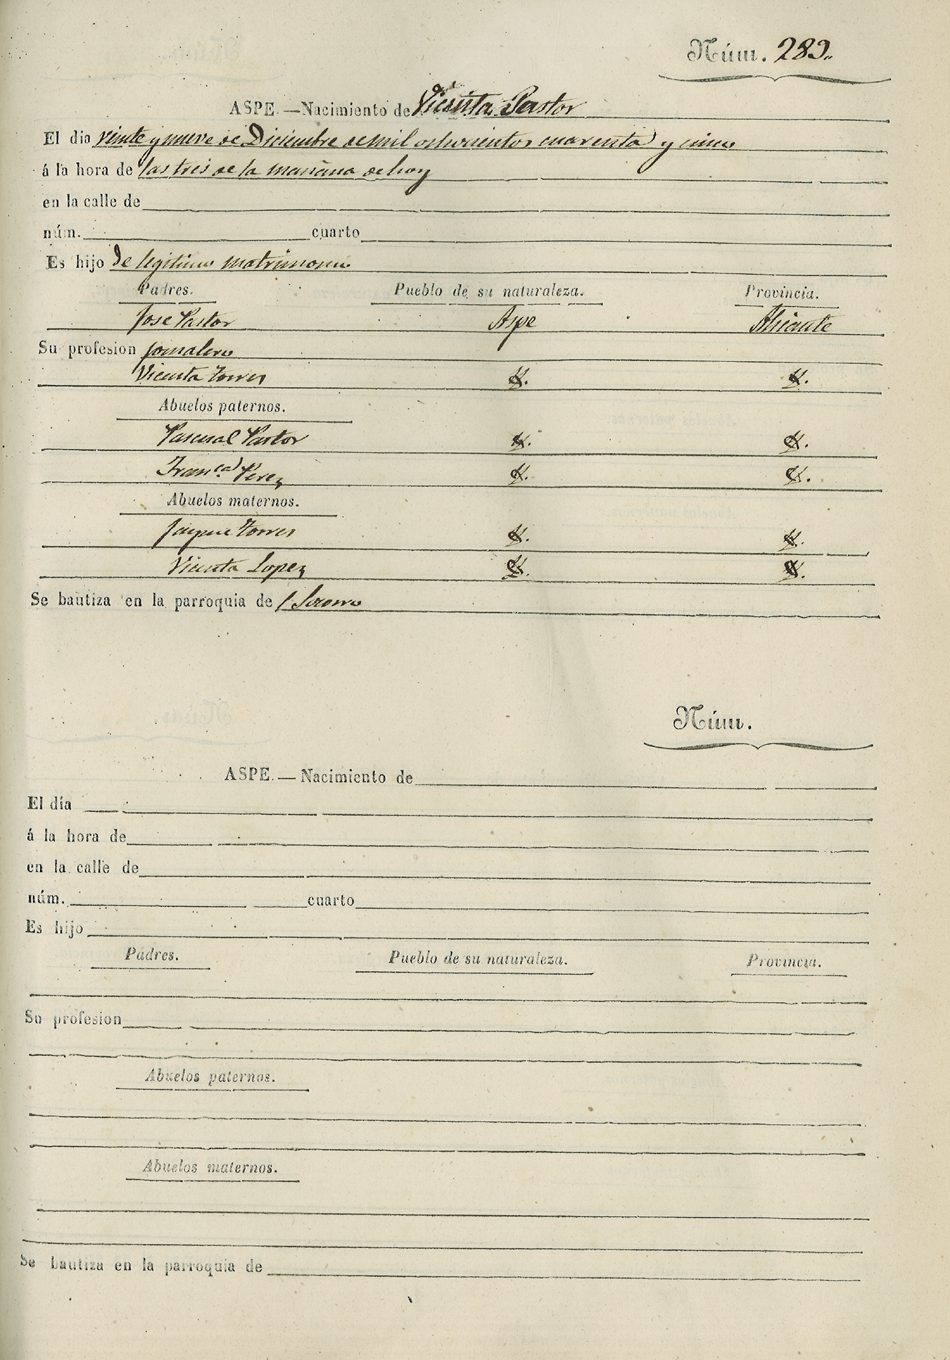 Núm. 289.
ASPE.—Nacimiento de Vicenta Pastor
El dia veinte y nueve de Diciembre de mil ochocientos cuarenta y cinco
á la hora de las tres de la mañana de hoy
en la calle de
núm. cuarto
Es hijo de legitimo matrimonio
Padres. Pueblo de su naturaleza. Provincia.
Jose Pastor Aspe Alicante
Su profesion jornalero
Vicenta Torres
Abuelos paternos.
Pascual Pastor
Franca Perez
Abuelos maternos.
Jayme Torres
Vicenta Lopez
Se bautiza en la parroquia de l Socorro
Núm.
ASPE.—Nacimiento de
El día
á la hora de
en la calle de
núm. cuarto
Es hijo
Padres. Pueblo de su naturaleza. Provincia.
Su profesion
Abuelos paternos.
Abuelos maternos.
Se bautiza en la parroquia de